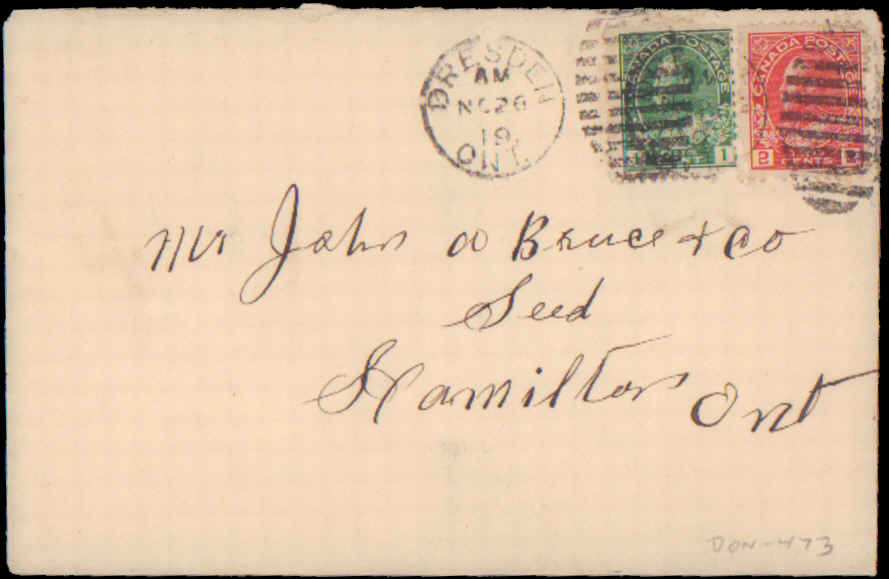 DRESDEN
AM
NO 26
19
ONT.
CANADA POSTAGE
1 1
CANADA POSTAGE
2 CENTS 2
Mr John A Bruce & Co
Seed
Hamilton Ont
DON-473